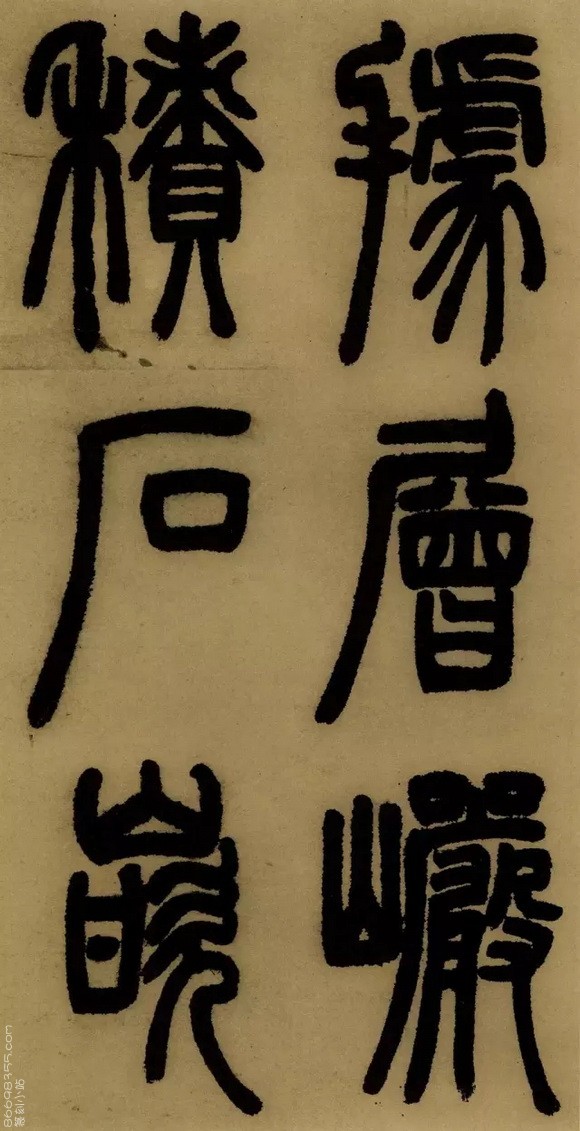 據層巖
積石嵌
86698355.com
篆刻小站